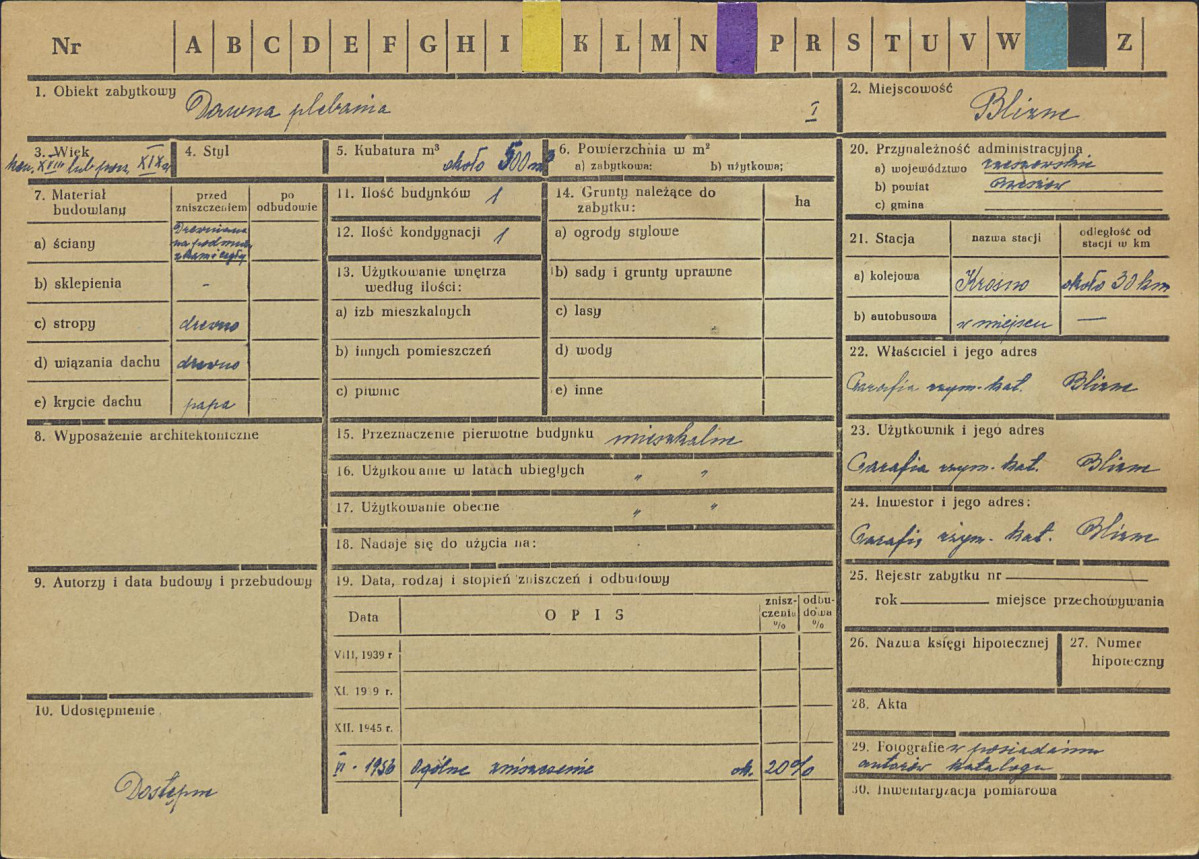 Nr A B C D E F G H I K L M N P R S T U V W Z
1. Obiekt zabytkowy Dawna plebania I
2. Miejscowość Blizne
3. Wiek kon. XVIII lub pocz. XIX w
4. Styl
5. Kubatura m³ około 500 m³
6. Powierzchnia w m²
a) zabytkowa: b) użytkowa:
7. Materiał budowlany
przed zniszczeniem
po odbudowie
a) ściany Drewniane na podmur. z kam i cegły
b) sklepienia -
c) stropy drewno
d) wiązania dachu drewno
e) krycie dachu papa
8. Wyposażenie architektoniczne
9. Autorzy i data budowy i przebudowy
10. Udostępnienie
Dostępne
11. Ilość budynków 1
12. Ilość kondygnacji 1
13. Użytkowanie wnętrza
według ilości:
a) izb mieszkalnych
b) innych pomieszczeń
c) piwnic
14. Grunty należące do
zabytku:
ha
a) ogrody stylowe
b) sady i grunty uprawne
c) lasy
d) wody
e) inne
15. Przeznaczenie pierwotne budynku mieszkalne
16. Użytkowanie w latach ubiegłych " "
17. Użytkowanie obecne " "
18. Nadaje się do użycia na:
19. Data, rodzaj i stopień zniszczeń i odbudowy
Data
O P I S
znisz-
czenia
%
odbu-
dowa
%
VIII. 1939 r
XI. 19 9 r.
XII. 1945 r.
VI - 1956 Ogólne zniszczenie ok. 20%
20. Przynależność administracyjna
a) województwo rzeszowskie
b) powiat Brzozów
c) gmina
21. Stacja
nazwa stacji
odległość od
stacji w km
a) kolejowa Krosno około 30 km
b) autobusowa w miejscu —
22. Właściciel i jego adres
Parafia rzym. kat. Blizne
23. Użytkownik i jego adres
Parafia rzym. kat. Blizne
24. Inwestor i jego adres:
Parafia rzym. kat. Blizne
25. Rejestr zabytku nr
rok miejsce przechowywania
26. Nazwa księgi hipotecznej
27. Numer
hipoteczny
28. Akta
29. Fotografie w posiadaniu
autorów katalogu
30. Inwentaryzacja pomiarowa